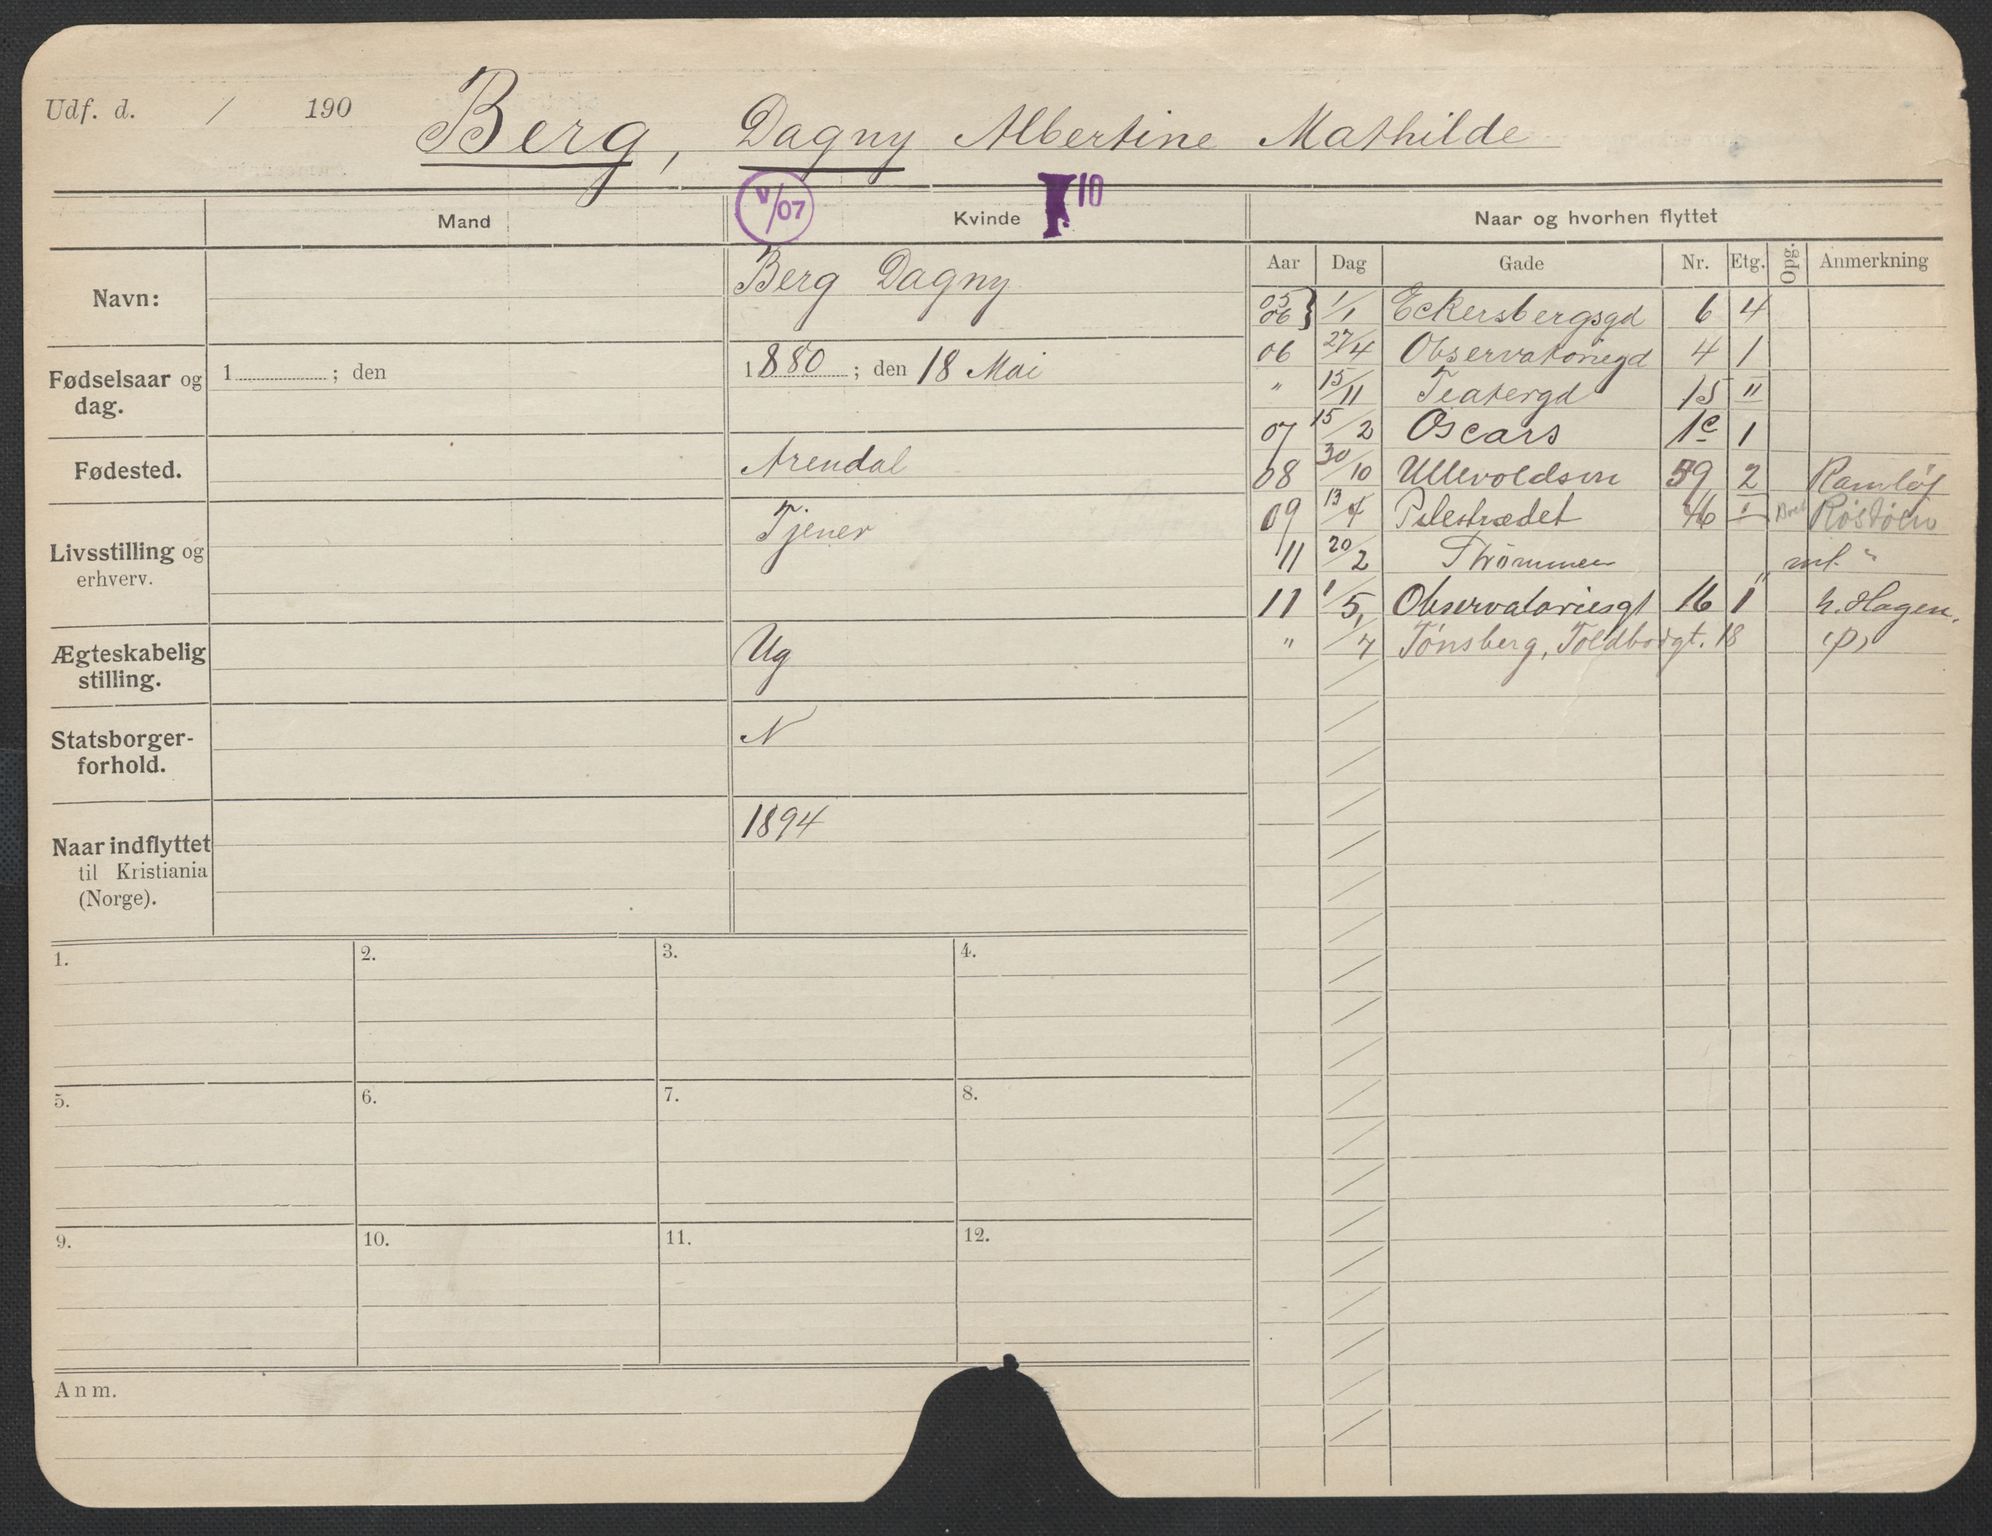 Udf. d. / 190
Berg, Dagny Albertine Mathilde
V/07
F. 10
Mand Kvinde Naar og hvorhen flyttet
Navn: Berg Dagny
Fødselsaar og dag. 1 ; den 1880 ; den 18 Mai
Fødested. Arendal
Livsstilling og erhverv. Tjener
Ægteskabelig stilling. Ug
Statsborgerforhold. N
Naar indflyttet til Kristiania (Norge). 1894
Aar Dag Gade Nr. Etg. Opg. Anmerkning
05 06 } 1/1 Eckersbergsgd 6 4
06 27/4 Observatoriegd 4 1
" 15/11 Teatergd 15 II
07 15/2 Oscars 1c 1
08 30/10 Ullevoldsvn 59 2
09 13/4 Pilestrædet 46 I
11 20/2 Strømmen
11 1/5, Observatoriesgt 16 1 h. Hagen.
" /7 Tønsberg, Toldbodgt. 18 (P)
1. 2. 3. 4.
5. 6. 7. 8.
9. 10. 11. 12.
Anm.